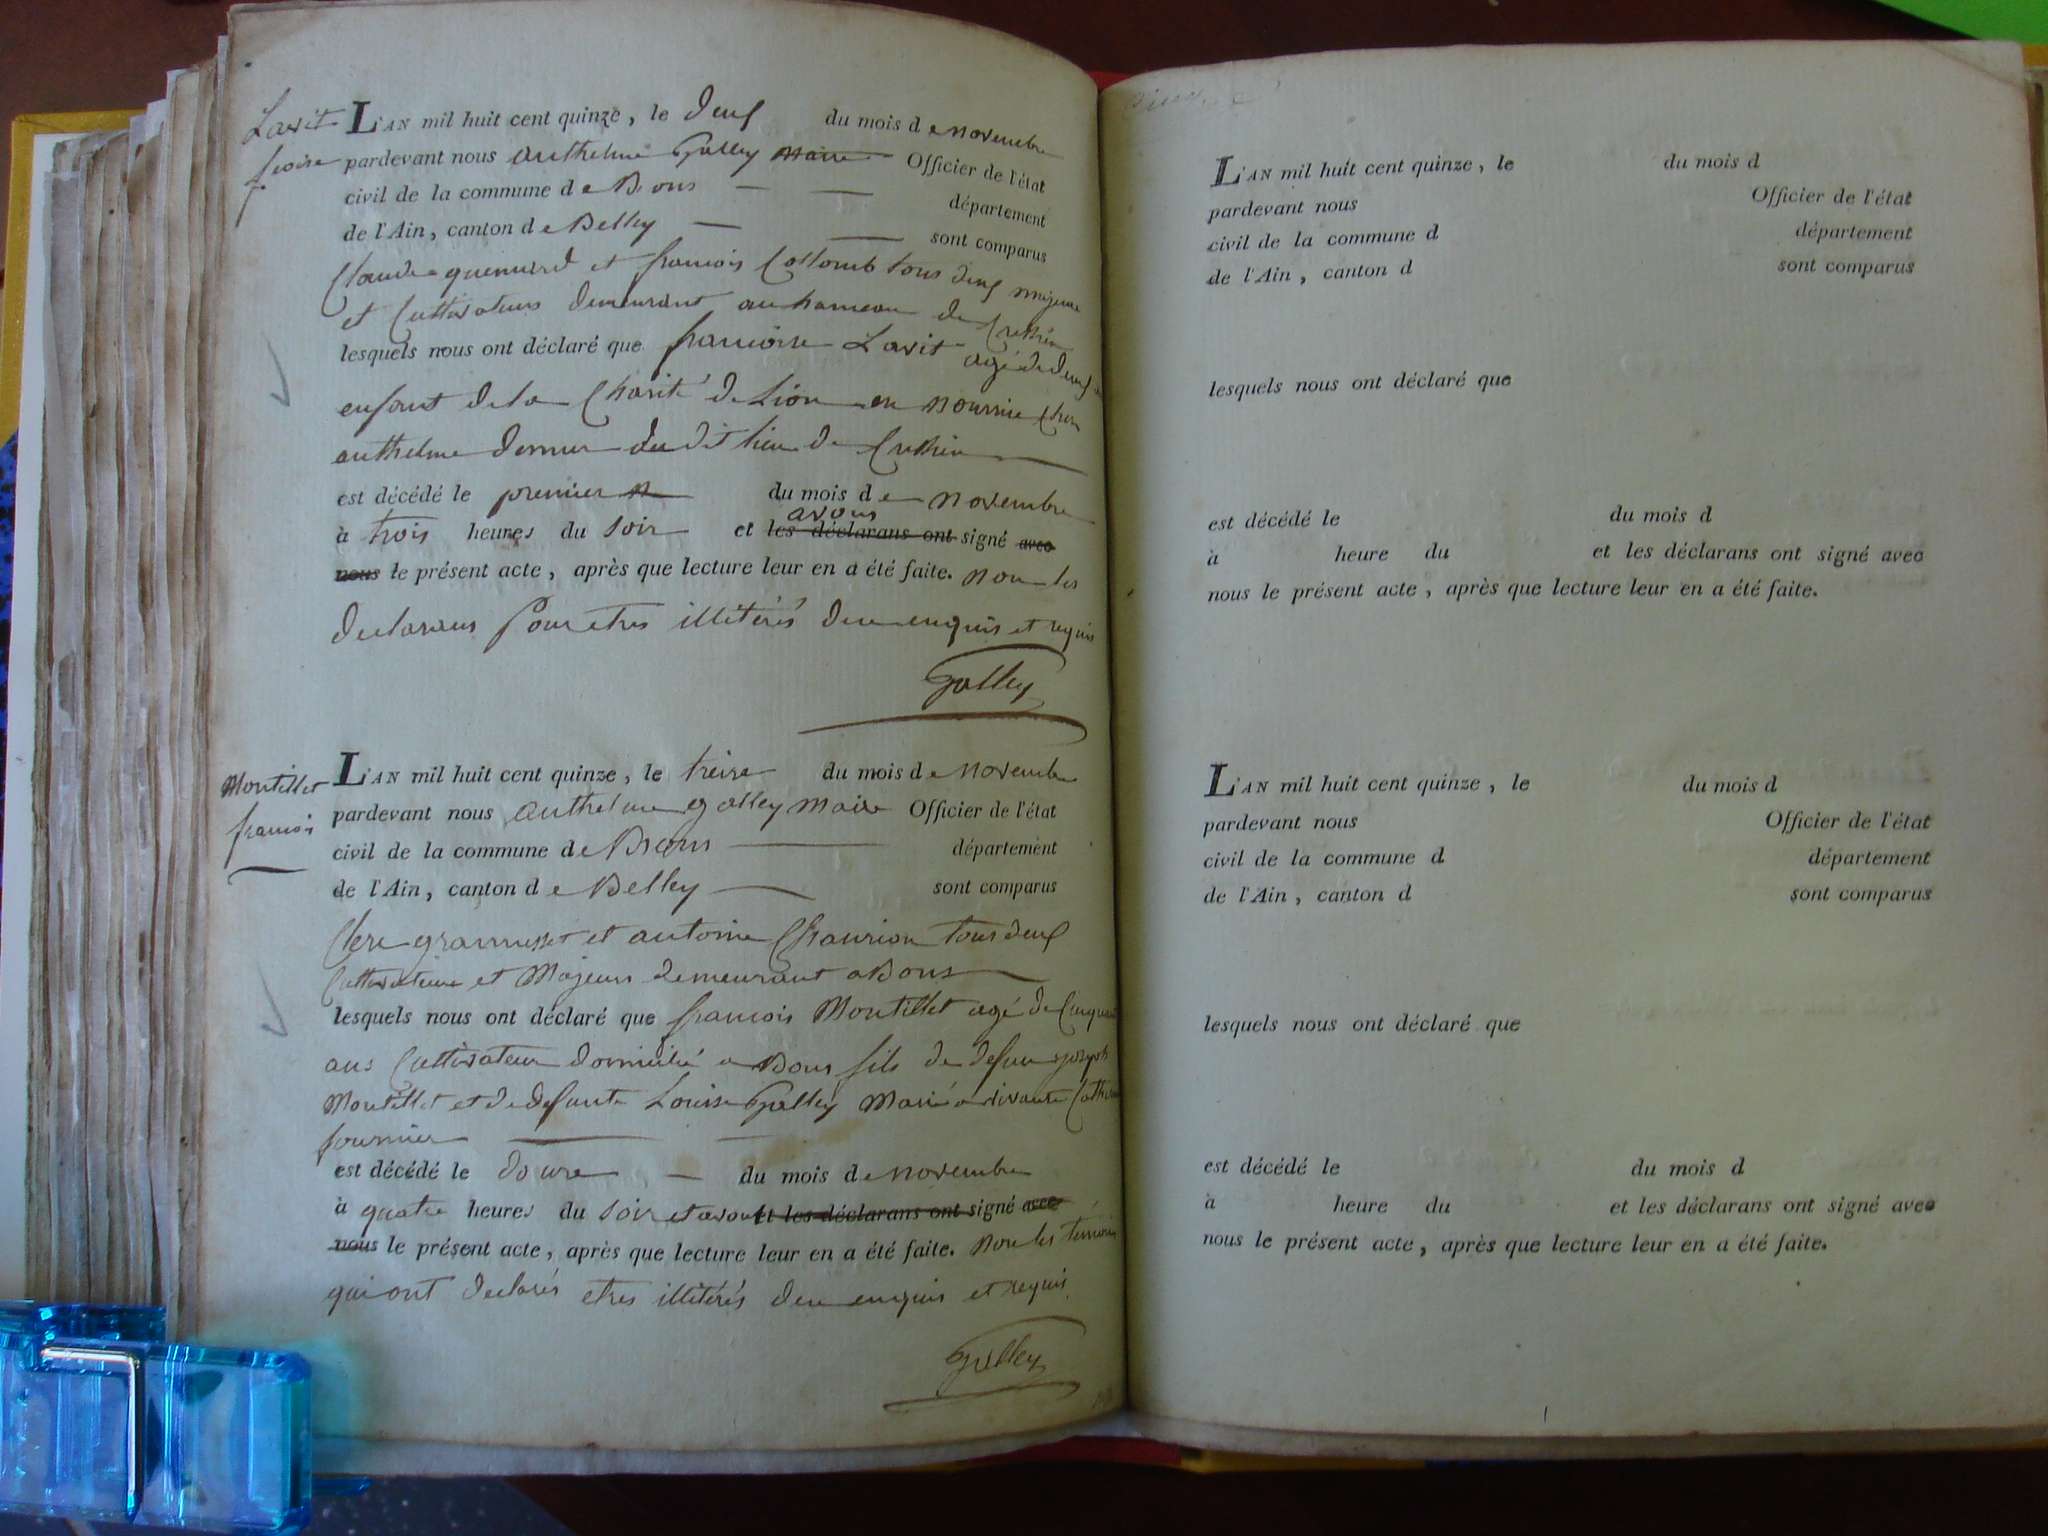 Lavit
L'AN mil huit cent quinze, le deux du mois de novembre
pardevant nous anthelme Galley maire Officier de l'état
civil de la commune de Bons département
de l'Ain, canton de Belley sont comparus
Claude guenard et francois Collomb tous deux majeurs
et Cultivateurs demeurant au hameau de
lesquels nous ont déclaré que francoise Lavit agé de deux
enfant de la Charité de Lion en nourrice Chez
anthelme du dit lieu de
est décédé le premier du mois de novembre
à trois heures du soir et avons les déclarans ont signé avec
nous le présent acte, après que lecture leur en a été faite. non les
declarans Pour etres illitérés de ce enquis et requis
Galley
Montillet
francois
L'AN mil huit cent quinze, le treize du mois de novembre
pardevant nous anthelme galley maire Officier de l'état
civil de la commune de Bons département
de l'Ain, canton de Belley sont comparus
et antoine tous deux
Cultivateurs et Majeurs demeurant a Bons
lesquels nous ont déclaré que francois Montillet agé de
ans Cultivateur domicilié a Bons fils de defun joseph
Montillet et de defunte Louise Galley Marié a vivante
fournier
est décédé le douze du mois de novembre
à quatre heures du soir et avons et les déclarans ont signé avec
nous le présent acte, après que lecture leur en a été faite. non les temoins
qui ont declarés etres illitérés de ce enquis et requis.
Galley
L'AN mil huit cent quinze, le du mois d
pardevant nous Officier de l'état
civil de la commune d département
de l'Ain, canton d sont comparus
lesquels nous ont déclaré que
est décédé le du mois d
à heure du et les déclarans ont signé avec
nous le présent acte, après que lecture leur en a été faite.
L'AN mil huit cent quinze, le du mois d
pardevant nous Officier de l'état
civil de la commune d département
de l'Ain, canton d sont comparus
lesquels nous ont déclaré que
est décédé le du mois d
à heure du et les déclarans ont signé avec
nous le présent acte, après que lecture leur en a été faite.